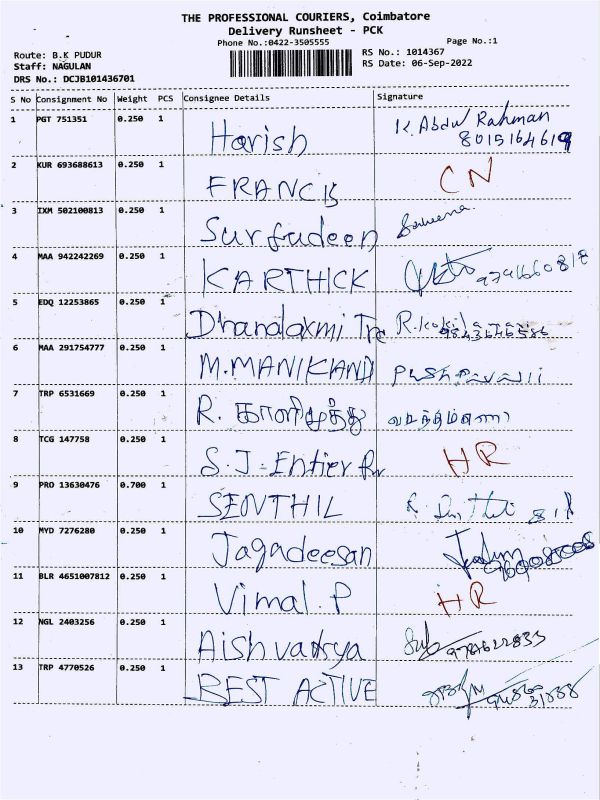 THE PROFESSIONAL COURIERS, Coimbatore
Delivery Runsheet - PCK
Phone No.:0422-3505555
Page No.:1
Route: B.K PUDUR
RS No.: 1014367
Staff: NAGULAN
RS Date: 06-Sep-2022
DRS No.: DCJB101436701
S No Consignment No Weight PCS Consignee Details Signature
1 PGT 751351 0.250 1 Harish K. Abdul Rahman
8015164619
2 KUR 693688613 0.250 1 FRANCIS CN
3 IXM 502100813 0.250 1 Surfudeen
4 MAA 942242269 0.250 1 KARTHICK 9791660818
5 EDQ 12253865 0.250 1 Dhanalaxmi
6 MAA 291754777 0.250 1 M.MANIKAND
7 TRP 6531669 0.250 1 R. காளிமுத்து
8 TCG 147758 0.250 1 S.J- HR
9 PRO 13630476 0.700 1 SENTHIL
10 MYD 7276280 0.250 1 Jagadeesan
11 BLR 4651007812 0.250 1 Vimal.P HR
12 NGL 2403256 0.250 1 Aishvarya
13 TRP 4770526 0.250 1 BEST ACTIVE